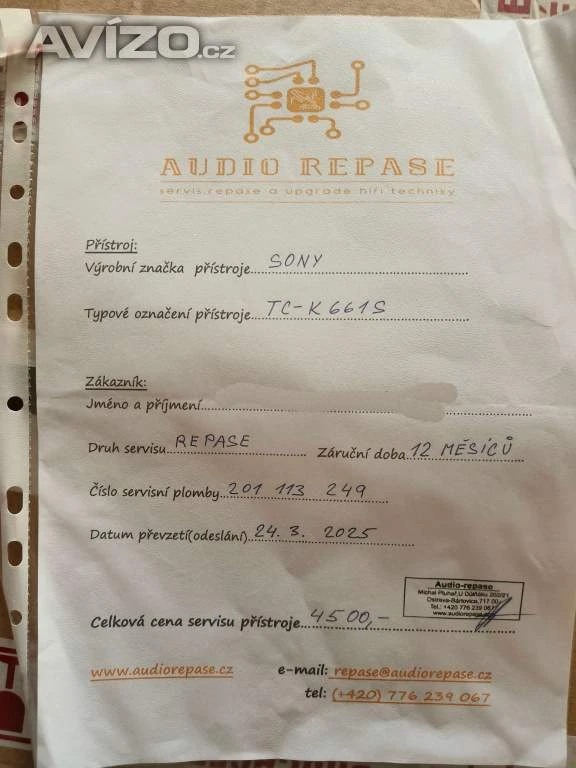 AVÍZO.cz
AUDIO REPASE
servis, repase a upgrade hifi techniky
Přístroj:
Výrobní značka přístroje SONY
Typové označení přístroje TC-K661S
Zákazník:
Jméno a příjmení
Druh servisu REPASE Záruční doba 12 MĚSÍCŮ
Číslo servisní plomby 201 113 249
Datum převzetí(odeslání) 24. 3. 2025
Audio-repase
Michal Pluhař,U
Ostrava-Bártovice,717 00
Tel.: +420 776 239 067
www.audiorepase.cz
Celková cena servisu přístroje 4500,-
www.audiorepase.cz e-mail: repase@audiorepase.cz
tel: (+420) 776 239 067